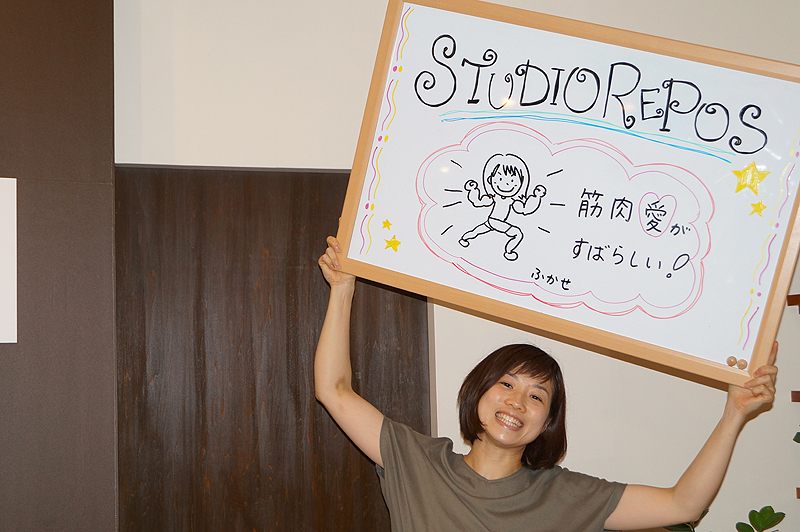 STUDIO REPOS
筋肉愛が
すばらしい!
ふかせ